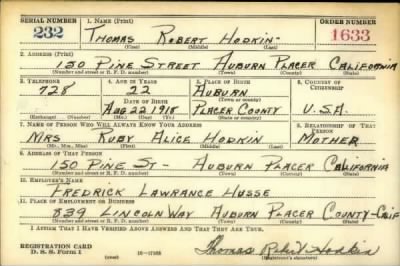 SERIAL NUMBER 1. NAME (Print) ORDER NUMBER
232 THOMAS ROBERT HODKIN 1633
(First) (Middle) (Last)
2. ADDRESS (Print)
150 PINE STREET AUBURN PLACER CALIFORNIA
(Number and street or R. F. D. number) (Town) (County) (State)
3. TELEPHONE 4. AGE IN YEARS 5. PLACE OF BIRTH 6. COUNTRY OF CITIZENSHIP
728 22 AUBURN
DATE OF BIRTH (Town or county)
AUG 22 1918 PLACER COUNTY U.S.A.
(Exchange) (Number) (Mo.) (Day) (Yr.) (State or country)
7. NAME OF PERSON WHO WILL ALWAYS KNOW YOUR ADDRESS 8. RELATIONSHIP OF THAT PERSON
MRS RUBY ALICE HODKIN MOTHER
(Mr., Mrs., Miss) (First) (Middle) (Last)
9. ADDRESS OF THAT PERSON
150 PINE ST- AUBURN PLACER CALIFORNIA
(Number and street or R. F. D. number) (Town) (County) (State)
10. EMPLOYER'S NAME
FREDRICK LAWRANCE HUSSE
11. PLACE OF EMPLOYMENT OR BUSINESS
839 LINCOLN WAY AUBURN PLACER COUNTY-CALIF
(Number and street or R. F. D. number) (Town) (County) (State)
I AFFIRM THAT I HAVE VERIFIED ABOVE ANSWERS AND THAT THEY ARE TRUE.
REGISTRATION CARD
D. S. S. Form 1 16-17105 Thomas Robert Hodkin